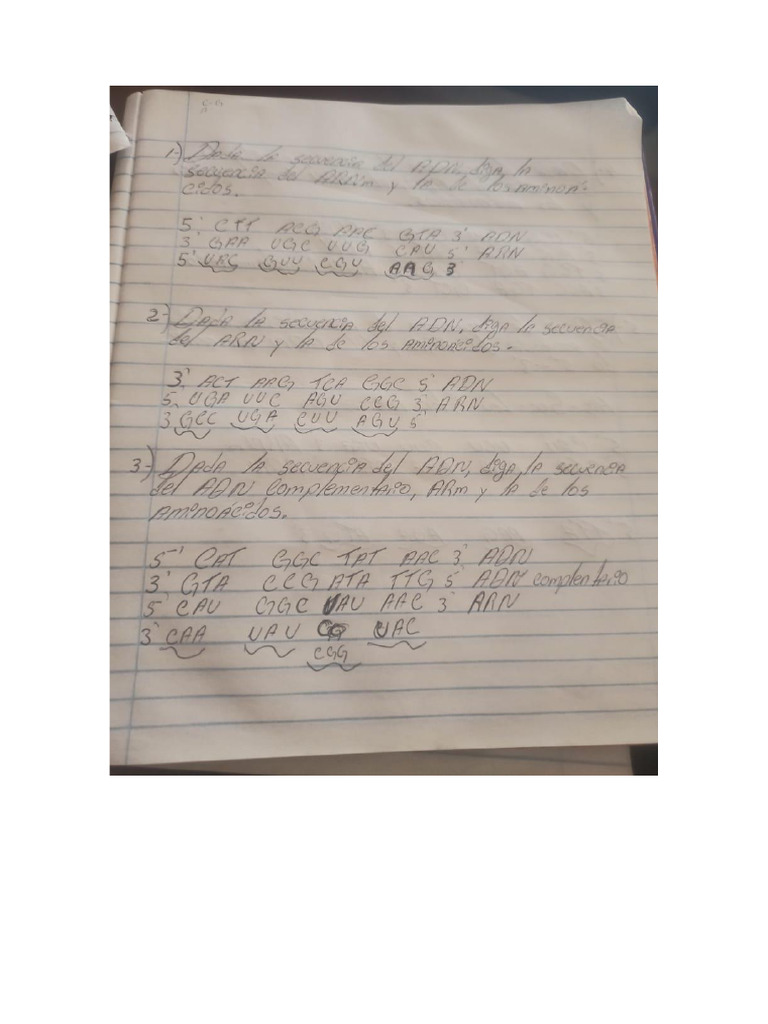 1-) Dada la secuencia del ADN, diga, la
secuencia del ARNm y la de los aminoá-
cidos.
5' CTT ACG AAC GTA 3' ADN
3' GAA UGC UUG CAU 5' ARN
5' UAC GUU CGU AAG 3'
2-) Dada la secuencia del ADN, diga la secuencia
del ARN y la de los aminoácidos.
3' ACT AAG TCA GGC 5' ADN
5' UGA UUC AGU CCG 3' ARN
3' GCC UGA CUU AGU 5'
3-) Dada la secuencia del ADN, diga, la secuencia
del ADN complementario, ARm y la de los
aminoácidos.
5' CAT GGC TAT AAC 3' ADN
3' GTA CCG ATA TTG 5' ADN complentario
5' CAU GGC UAU AAC 3' ARN
3' CAA UAU CG UAC
CGG